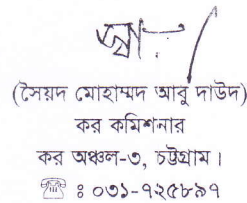 স্বা:-/
(সৈয়দ মোহাম্মদ আবু দাউদ)
কর কমিশনার
কর অঞ্চল-৩, চট্টগ্রাম।
☎ ঃ ০৩১-৭২৫৮৯৭